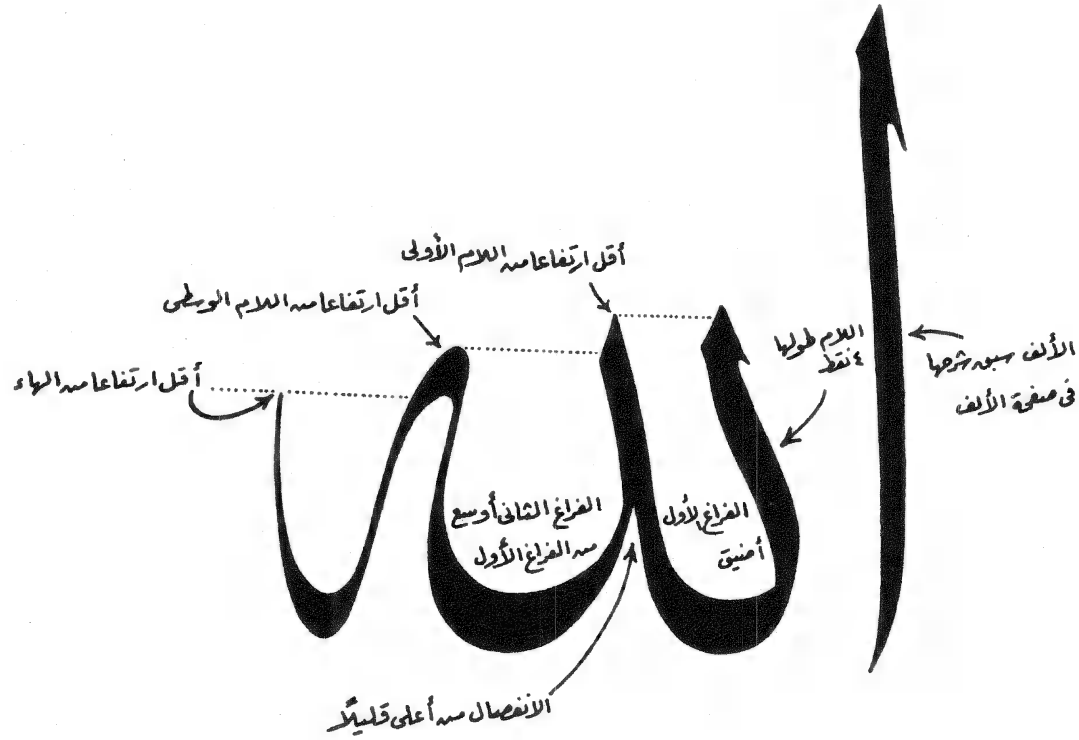 الله
أقل ارتفاعا من اللام الأولى
أقل ارتفاعا من اللام الوسطى
أقل ارتفاعا من الهاء
اللام طولها
٤ نقط
الألف سبق شرحها
فى صفحة الألف
الفراغ الأول
أضيق
الفراغ الثانى أوسع
من الفراغ الأول
الانفصال من أعلى قليلاً